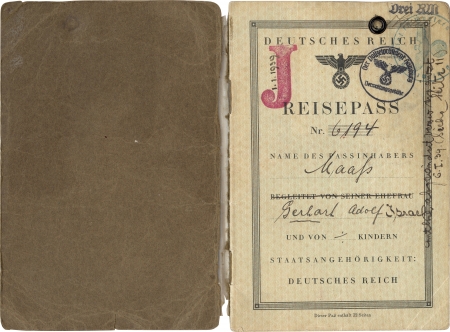 Drei RM
DEUTSCHES REICH
J
1.1.1939
REISEPASS
Nr. 6194
NAME DES PASSINHABERS
Maaß
BEGLEITET VON SEINER EHEFRAU
Gerhart Adolf Israel
UND VON KINDERN
STAATSANGEHÖRIGKEIT:
DEUTSCHES REICH
Dieser Paß enthält 32 Seiten